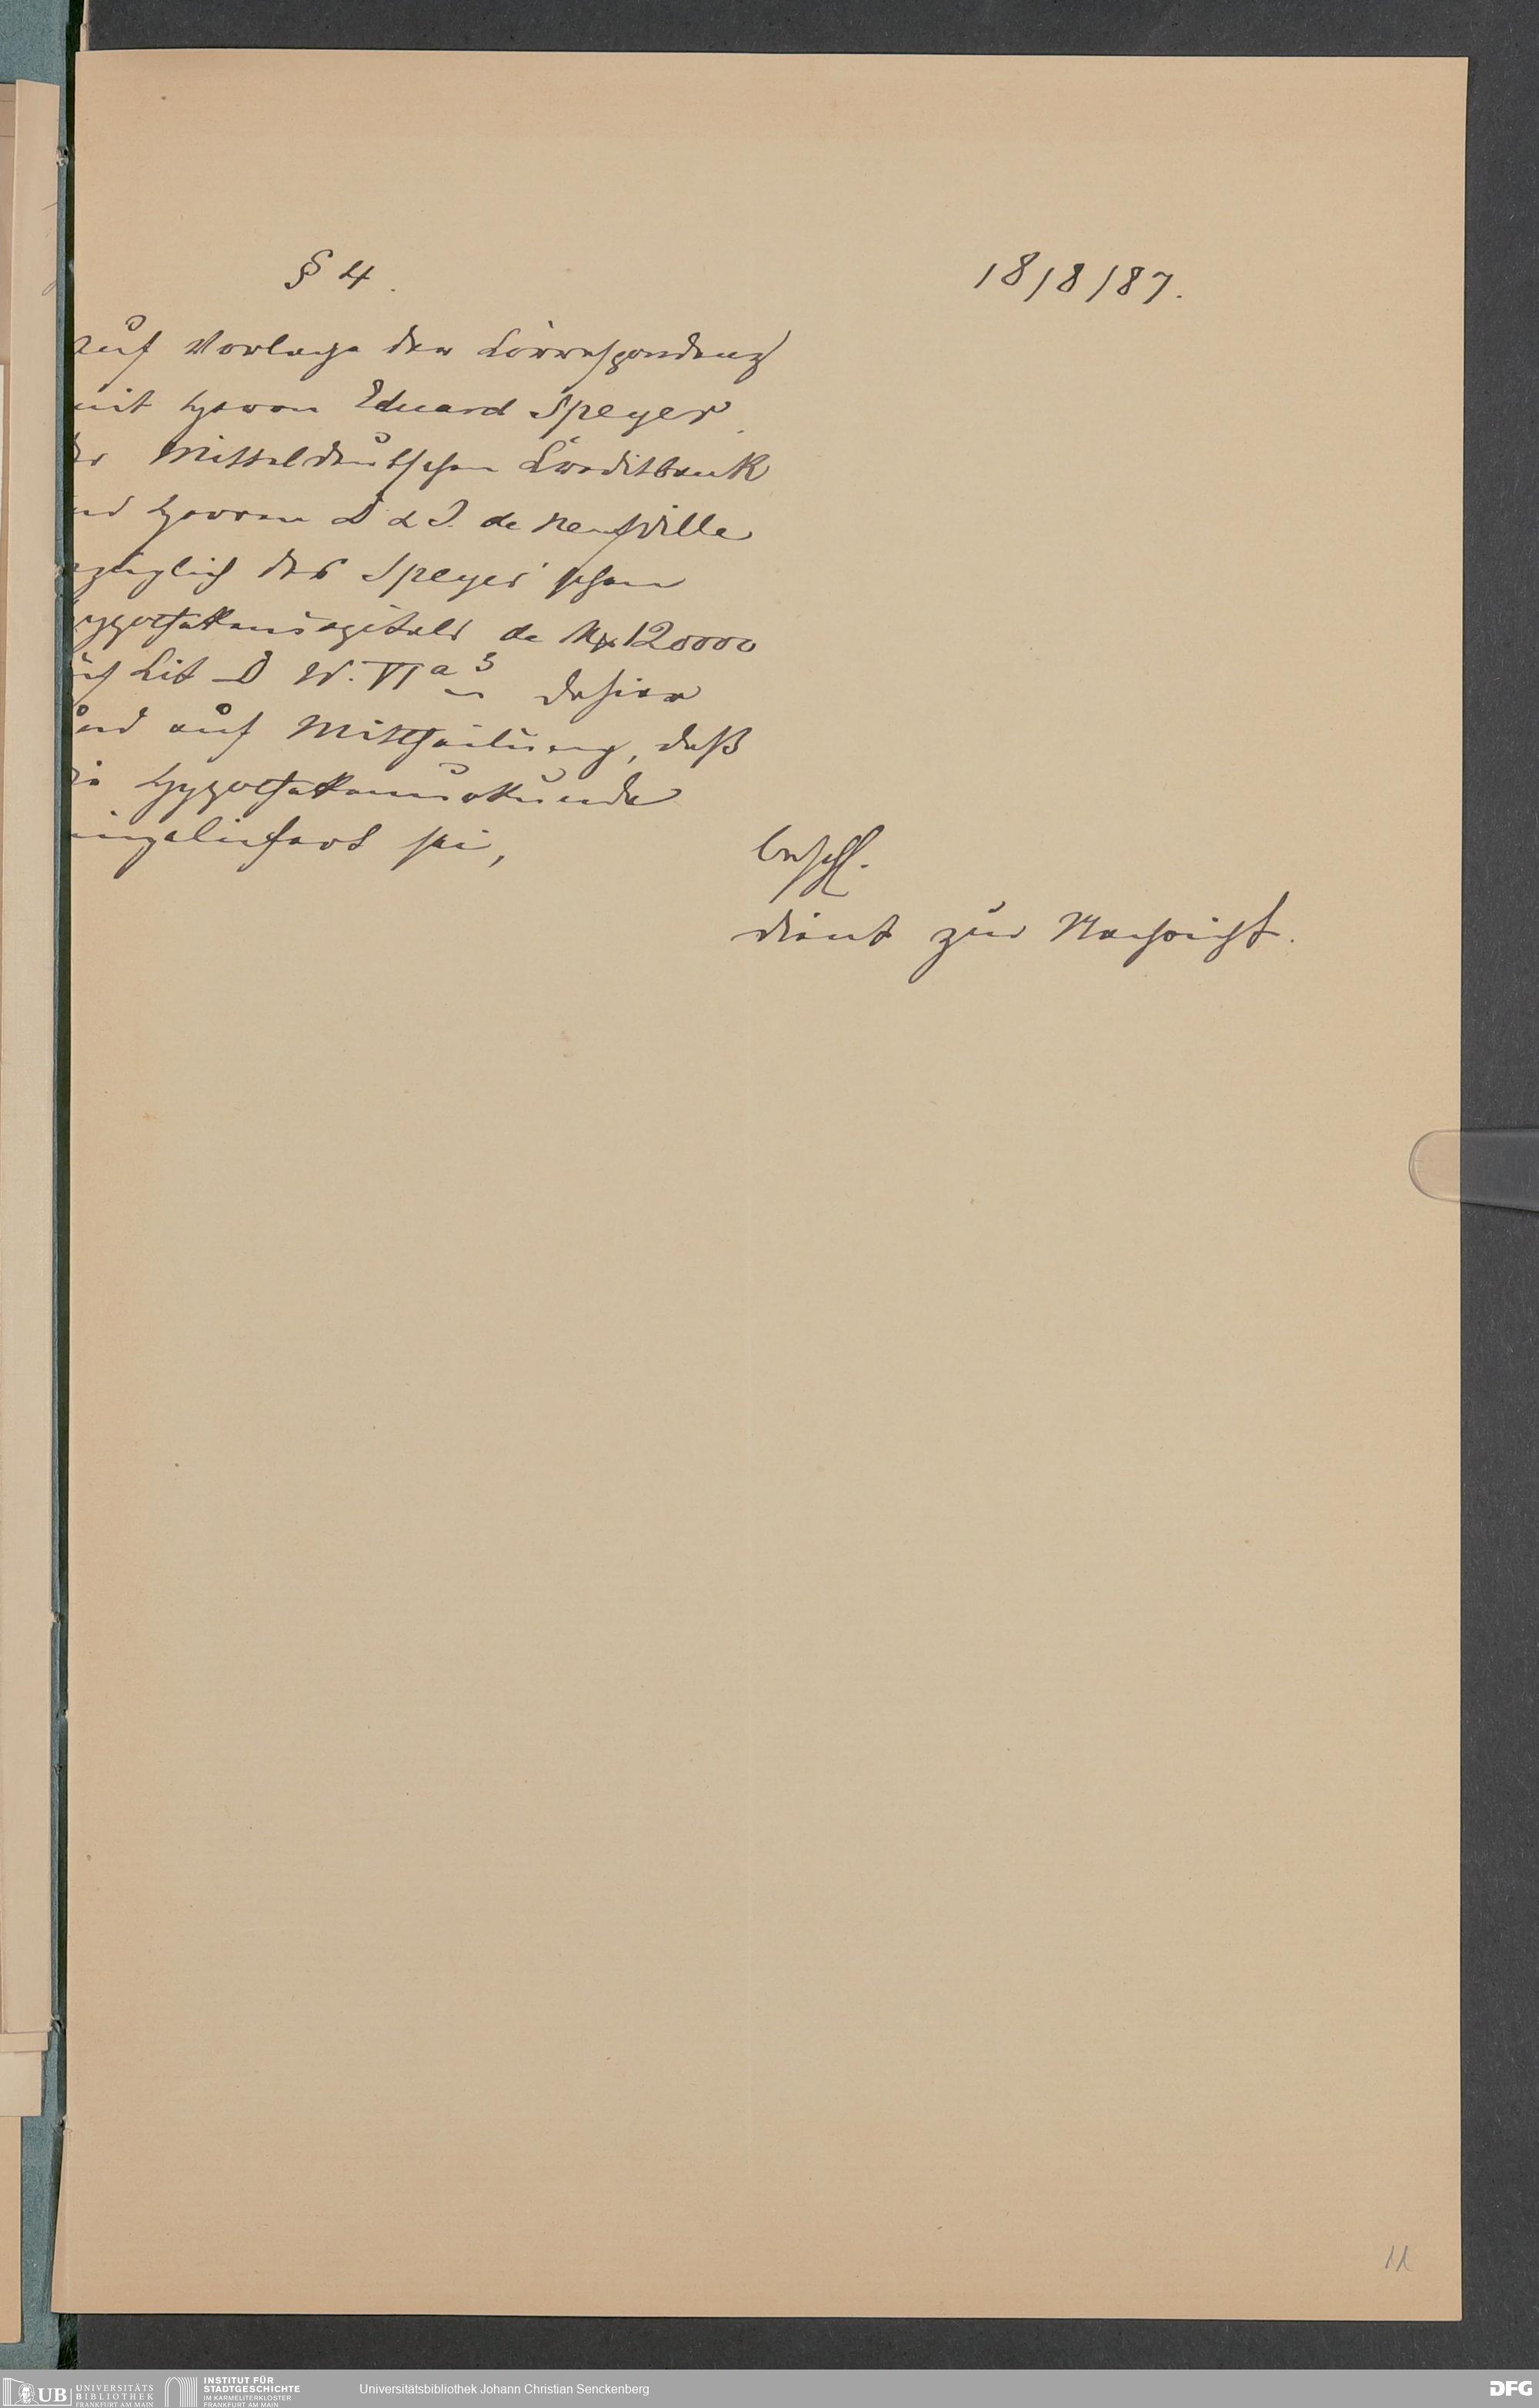 § 4.
18/8/87.
Auf Vorlage der Correspondenz
mit Herrn Eduard Speyer
der Mitteldeutschen Creditbank
und Herren D & J. de Neufville
bezüglich des Speyer'schen
Hypothekencapitals de M 120000
auf Lit D W. VIa 3 dahier
und auf Mittheilung, daß
die Hypothekenurkunde
eingeliefert sei,
beschl.
dient zur Nachricht.
11
UB UNIVERSITÄTS BIBLIOTHEK FRANKFURT AM MAIN
INSTITUT FÜR STADTGESCHICHTE IM KARMELITERKLOSTER FRANKFURT AM MAIN
Universitätsbibliothek Johann Christian Senckenberg
DFG